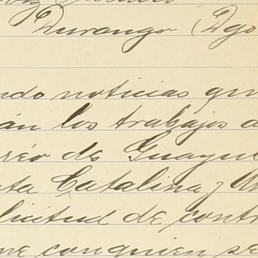 Durango (Dgo
ndo noticias qu
án los trabajos a
réo de Guay
ta Catalina y
licitud de contr
me con quien se